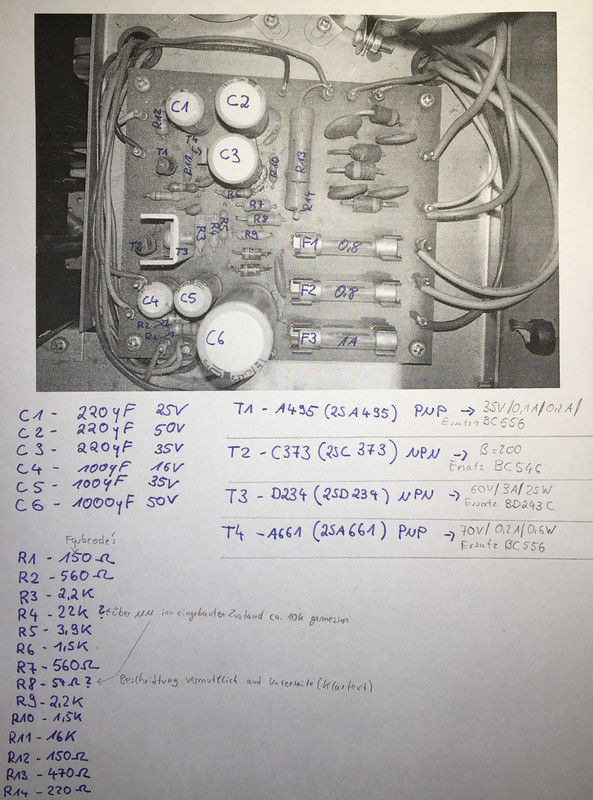 C1
C2
R12
T4
C3
T1
R11
R10
R13
R6
R7
R14
R8
R3
R4
R5
R9
F1 0,8
T2
T3
F2 0,8
C4
C5
R2
R1
C6
F3 1A
C1 - 220µF 25V
C2 - 220µF 50V
C3 - 220µF 35V
C4 - 100µF 16V
C5 - 100µF 35V
C6 - 1000µF 50V
T1 - A495 (2SA495) PNP → 35V/0,1A/0,2A/
Ersatz BC556
T2 - C373 (2SC373) NPN → β=200
Ersatz BC546
T3 - D234 (2SD234) NPN → 60V/3A/25W
Ersatz BD243C
T4 - A661 (2SA661) PNP → 70V/0,2A/0,6W
Ersatz BC556
Farbcode's
R1 - 150Ω
R2 - 560Ω
R3 - 2,2K
R4 - 22K ? ← Über MM im eingebauten Zustand ca. 10K gemessen
R5 - 3,9K
R6 - 1,5K
R7 - 560Ω
R8 - 54Ω ? ← Beschriftung vermutlich auf Unterseite (Klartext)
R9 - 2,2K
R10 - 1,5K
R11 - 16K
R12 - 150Ω
R13 - 470Ω
R14 - 220Ω